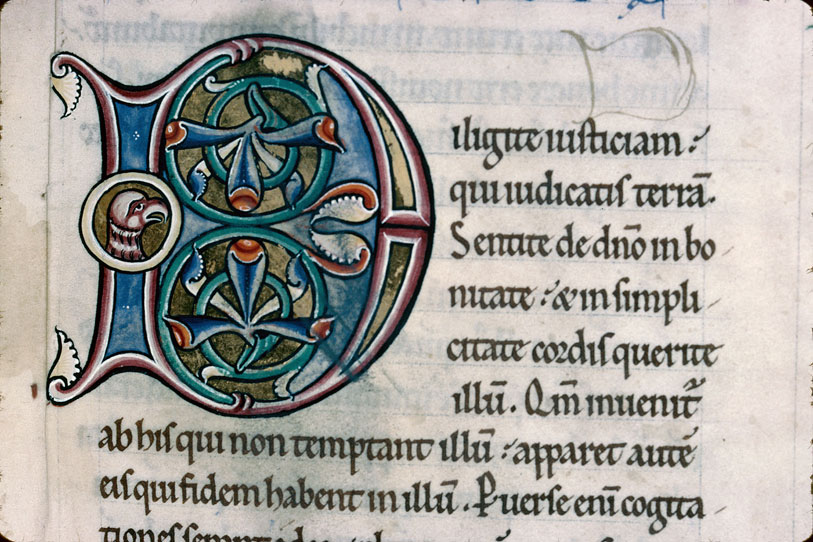 Diligite iusticiam:
qui iudicatis terrā.
Sentite de dn̄o in bo
nitate: & in simpli-
citate cordis querite
illū. Qm̄ inuenit᷑
ab his qui non temptant illū: apparet autē
eis qui fidem habent in illū. Puerse eni̅ cogita-
tiones